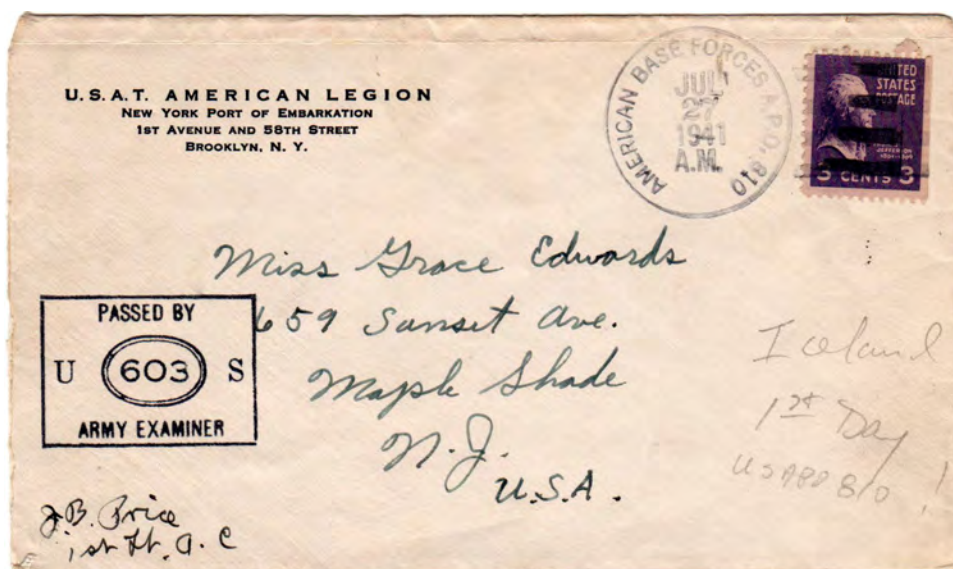 U.S.A.T. AMERICAN LEGION
NEW YORK PORT OF EMBARKATION
1ST AVENUE AND 58TH STREET
BROOKLYN, N. Y.
AMERICAN BASE FORCES A.P.O. 810
JUL
27
1941
A.M.
UNITED
STATES
POSTAGE
JEFFERSON
3 CENTS 3
Miss Grace Edwards
659 Sunset Ave.
Maple Shade
N.J.
U.S.A.
PASSED BY
U 603 S
ARMY EXAMINER
J.B. Price
1st Lt. A.C
Iceland
1st Day
USAPO 810 !